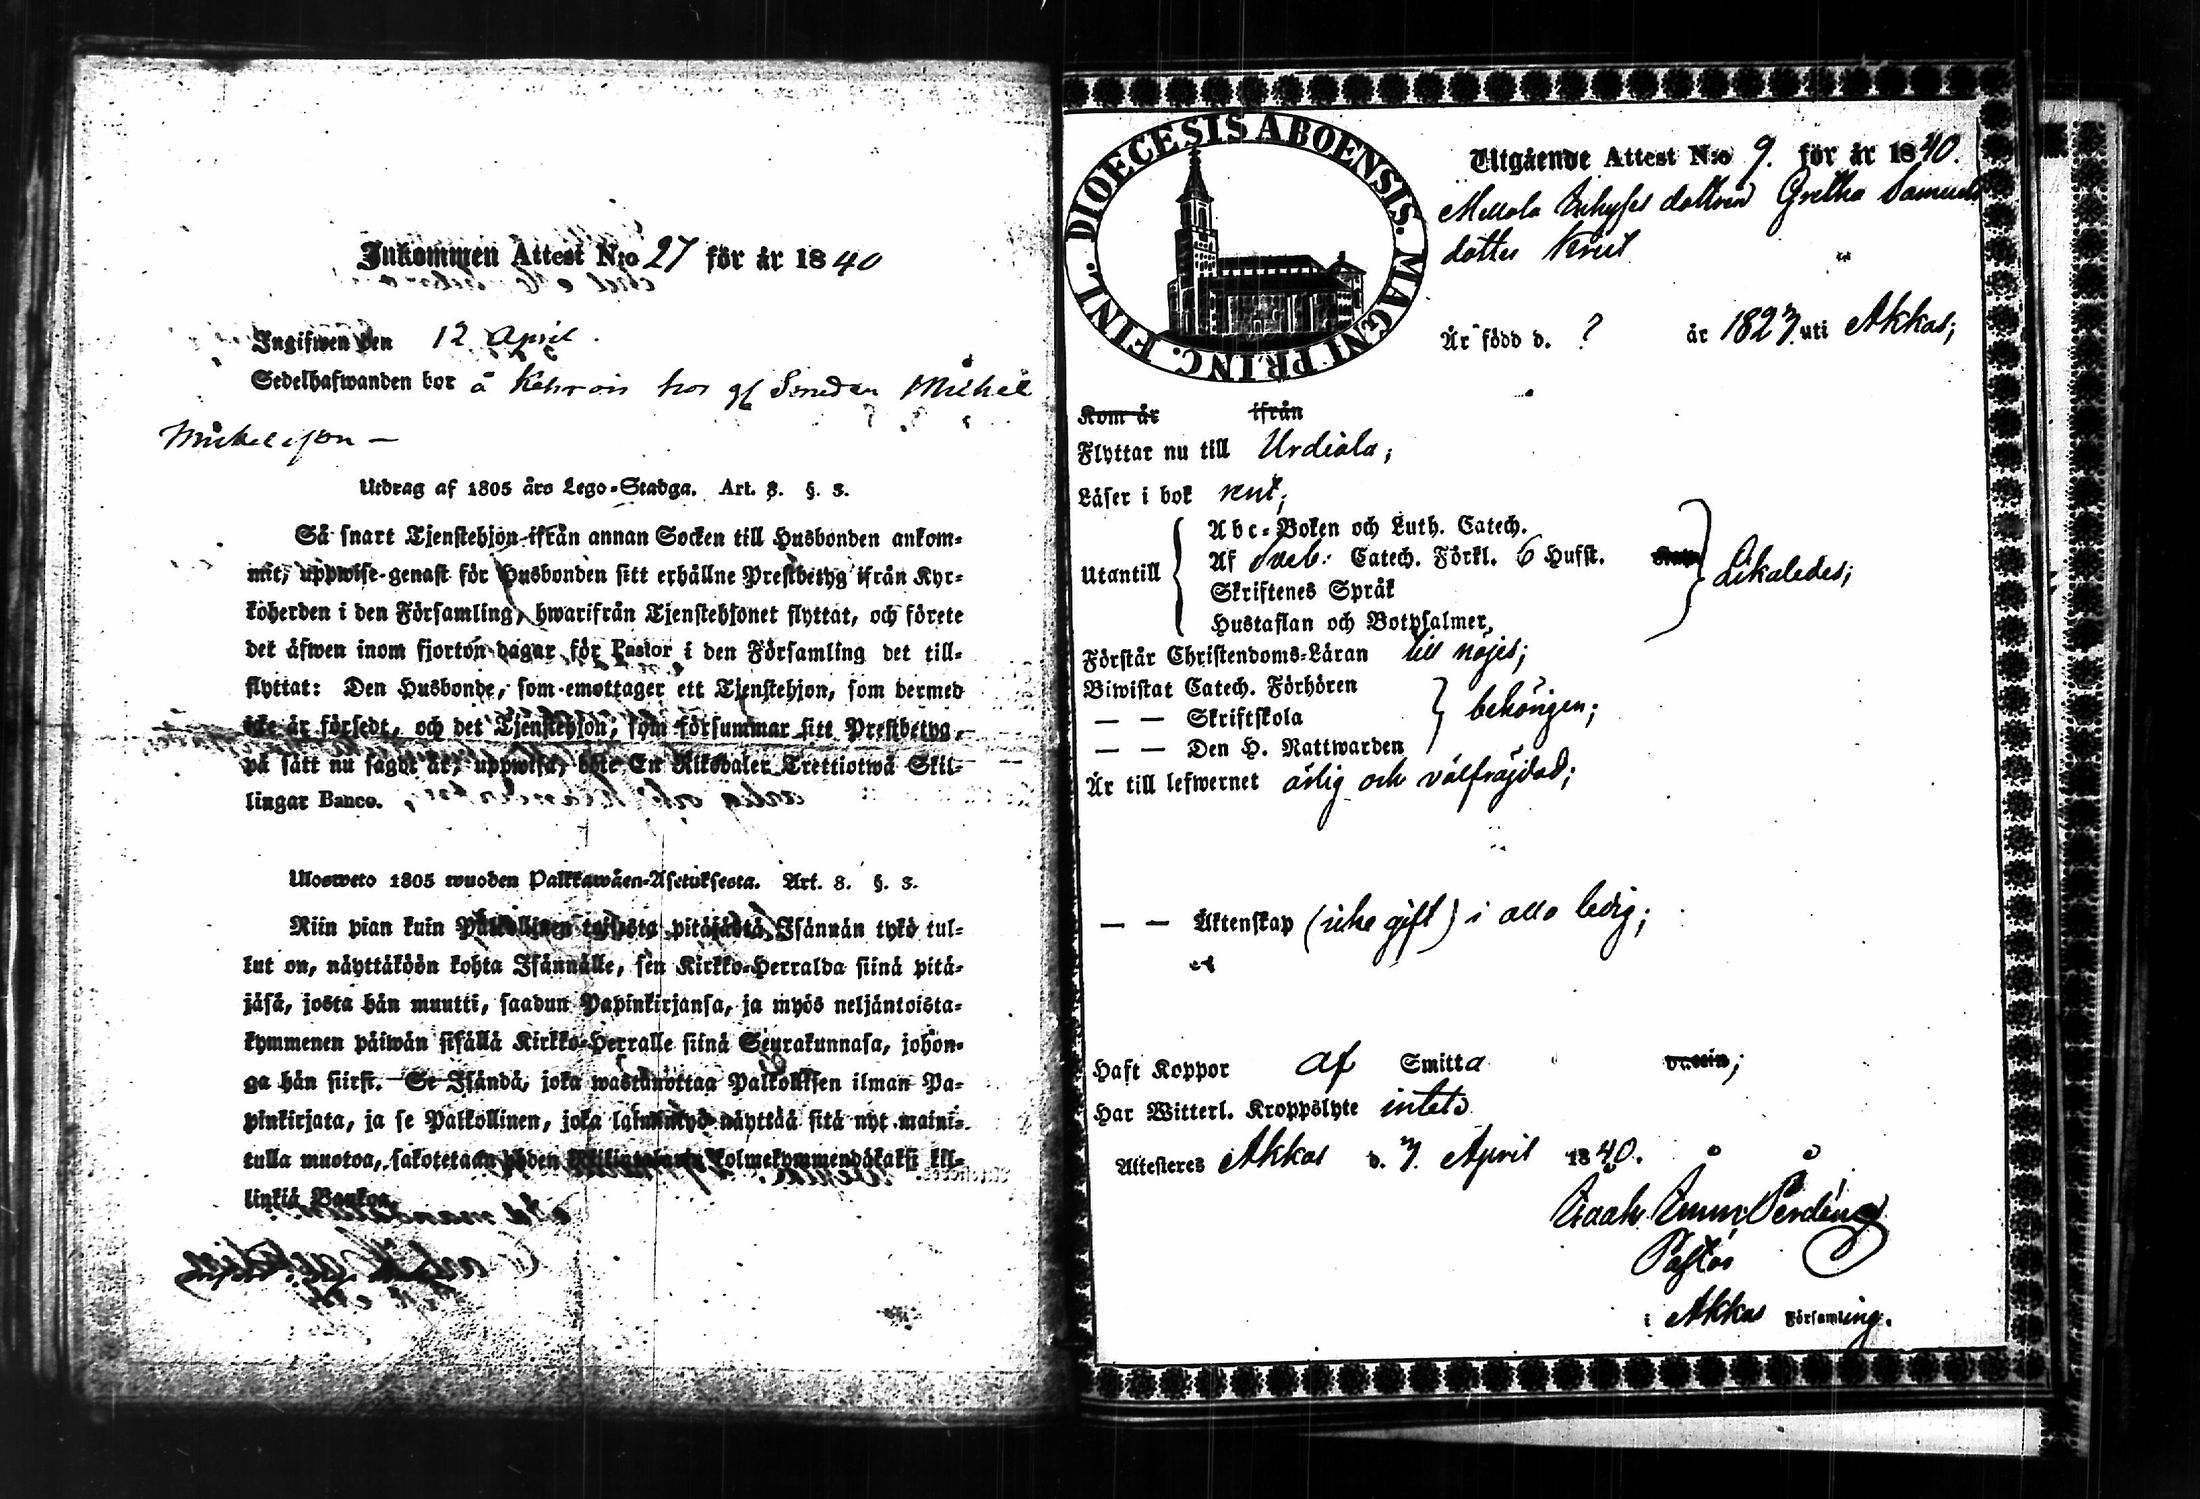 Inkommen Attest N:o 27 för år 1840
Ingifwen den 12 April.
Sedelhafwanden bor å Kehrois hos gl Smeden Michel
Michelsson —
Utdrag af 1805 års Lego-Stadga. Art. 8. §. 3.
Så snart Tjenstehjon ifrån annan Socken till Husbonden ankom-
mit, uppwise genast för Husbonden sitt erhållne Prestbetyg ifrån Kyr-
koherden i den Församling, hwarifrån Tjenstehjonet flyttat, och förete
det äfwen inom fjorton dagar för Pastor i den Församling det till-
flyttat: Den Husbonde, som emottager ett Tjenstehjon, som dermed
icke är försedt, och det Tjenstehjon, som försummar sitt Prestbetyg,
på sätt nu sagdt är, uppwisa, böte En Riksdaler Trettiotwå Skil-
lingar Banco.
Ulosweto 1805 wuoden Palkkawäen-Asetuksesta. Art. 8. §. 3.
Niin pian kuin Palkollinen toisesta pitäjästä Isännän tykö tul-
lut on, näyttäköön kohta Isännälle, sen Kirkko-Herralda siinä pitä-
jäsä, josta hän muutti, saadun Papinkirjansa, ja myös neljäntoista-
kymmenen päiwän sisällä Kirkko-Herralle siinä Seurakunnasa, johon-
ga hän siirst. Se Isändä, joka wastanottaa Palkollisen ilman Pa-
pinkirjata, ja se Palkollinen, joka laiminlyö näyttää sitä nyt maini-
tulla muotoa, sakotetaan yhden Riksitalarin kolmekymmendäkaksi kil-
linkiä Bankoa
DIOECESIS ABOENSIS. MAGNI PRINC. FINL.
Utgående Attest N:o 9. för år 1840.
Mellola dottren Gretha Samuels
dotter
Är född d. ? år 1823. uti Akkas;
Kom år ifrån
Flyttar nu till Urdiala;
Läser i bok rent;
Utantill
Abc-Boken och Luth. Catech.
Af Sveb: Catech. Förkl. 6 Hufst.
Skriftenes Språk
Hustaflan och Botpsalmer
Likaledes;
Förstår Christendoms-Läran till nöjes;
Biwistat Catech. Förhören
— — Skriftskola
— — Den H. Nattwarden
behörigen;
Är till lefwernet ärlig och välfräjdad;
— — Äktenskap (icke gift) i allo ledig;
Haft Koppor af Smitta
Har Witterl. Kroppslyte intet
Attesteres Akkas d. 3. April 1840.
Isaah Emm: Perdén
Pastor
i Akkas Församling.